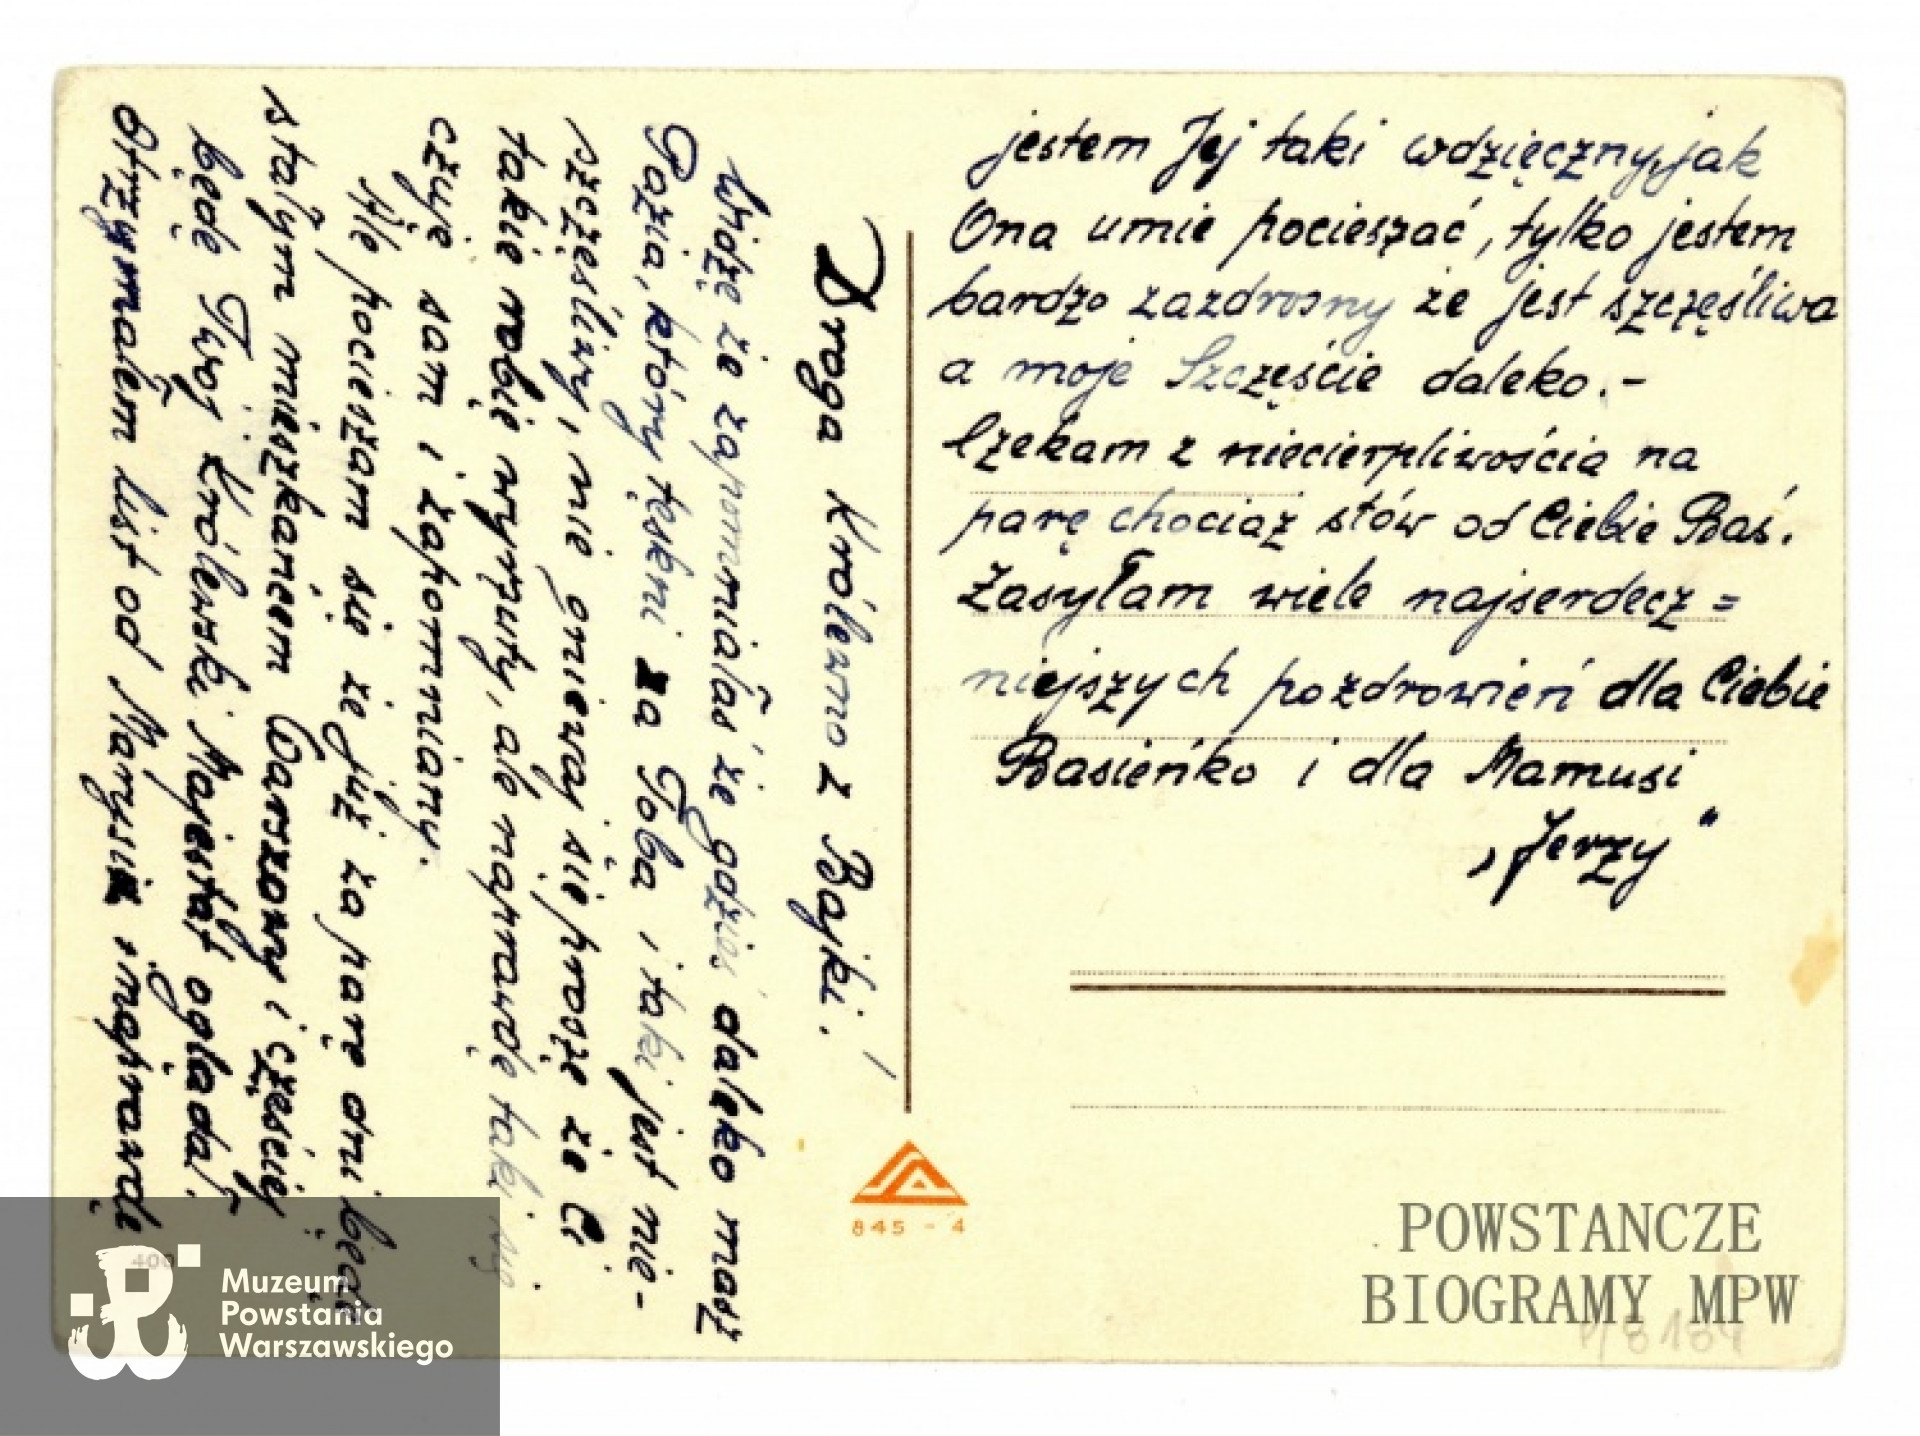 Droga Królewno z Bajki!
Widzę że zapomniałaś że gdzieś daleko masz
Pazia, który tęskni za Tobą i taki jest nie-
szczęśliwy, nie gniewaj się proszę że Ci
takie robię wyrzuty, ale naprawdę taki się
czuję sam i zapomniany.
Ale pocieszam się że już za parę dni będę
stałym mieszkańcem Warszawy i częściej
będę Twój Królewski Majestat oglądał.
Otrzymałem list od Marysi i naprawdę
jestem Jej taki wdzięczny, jak
Ona umie pocieszać, tylko jestem
bardzo zazdrosny że jest szczęśliwa
a moje Szczęście daleko.-
Czekam z niecierpliwością na
parę chociaż słów od Ciebie Baś.
Zasyłam wiele najserdecz=
niejszych pozdrowień dla Ciebie
Basieńko i dla Mamusi
„Jerzy"
845 - 4
400
Muzeum
Powstania
Warszawskiego
POWSTAŃCZE
BIOGRAMY MPW